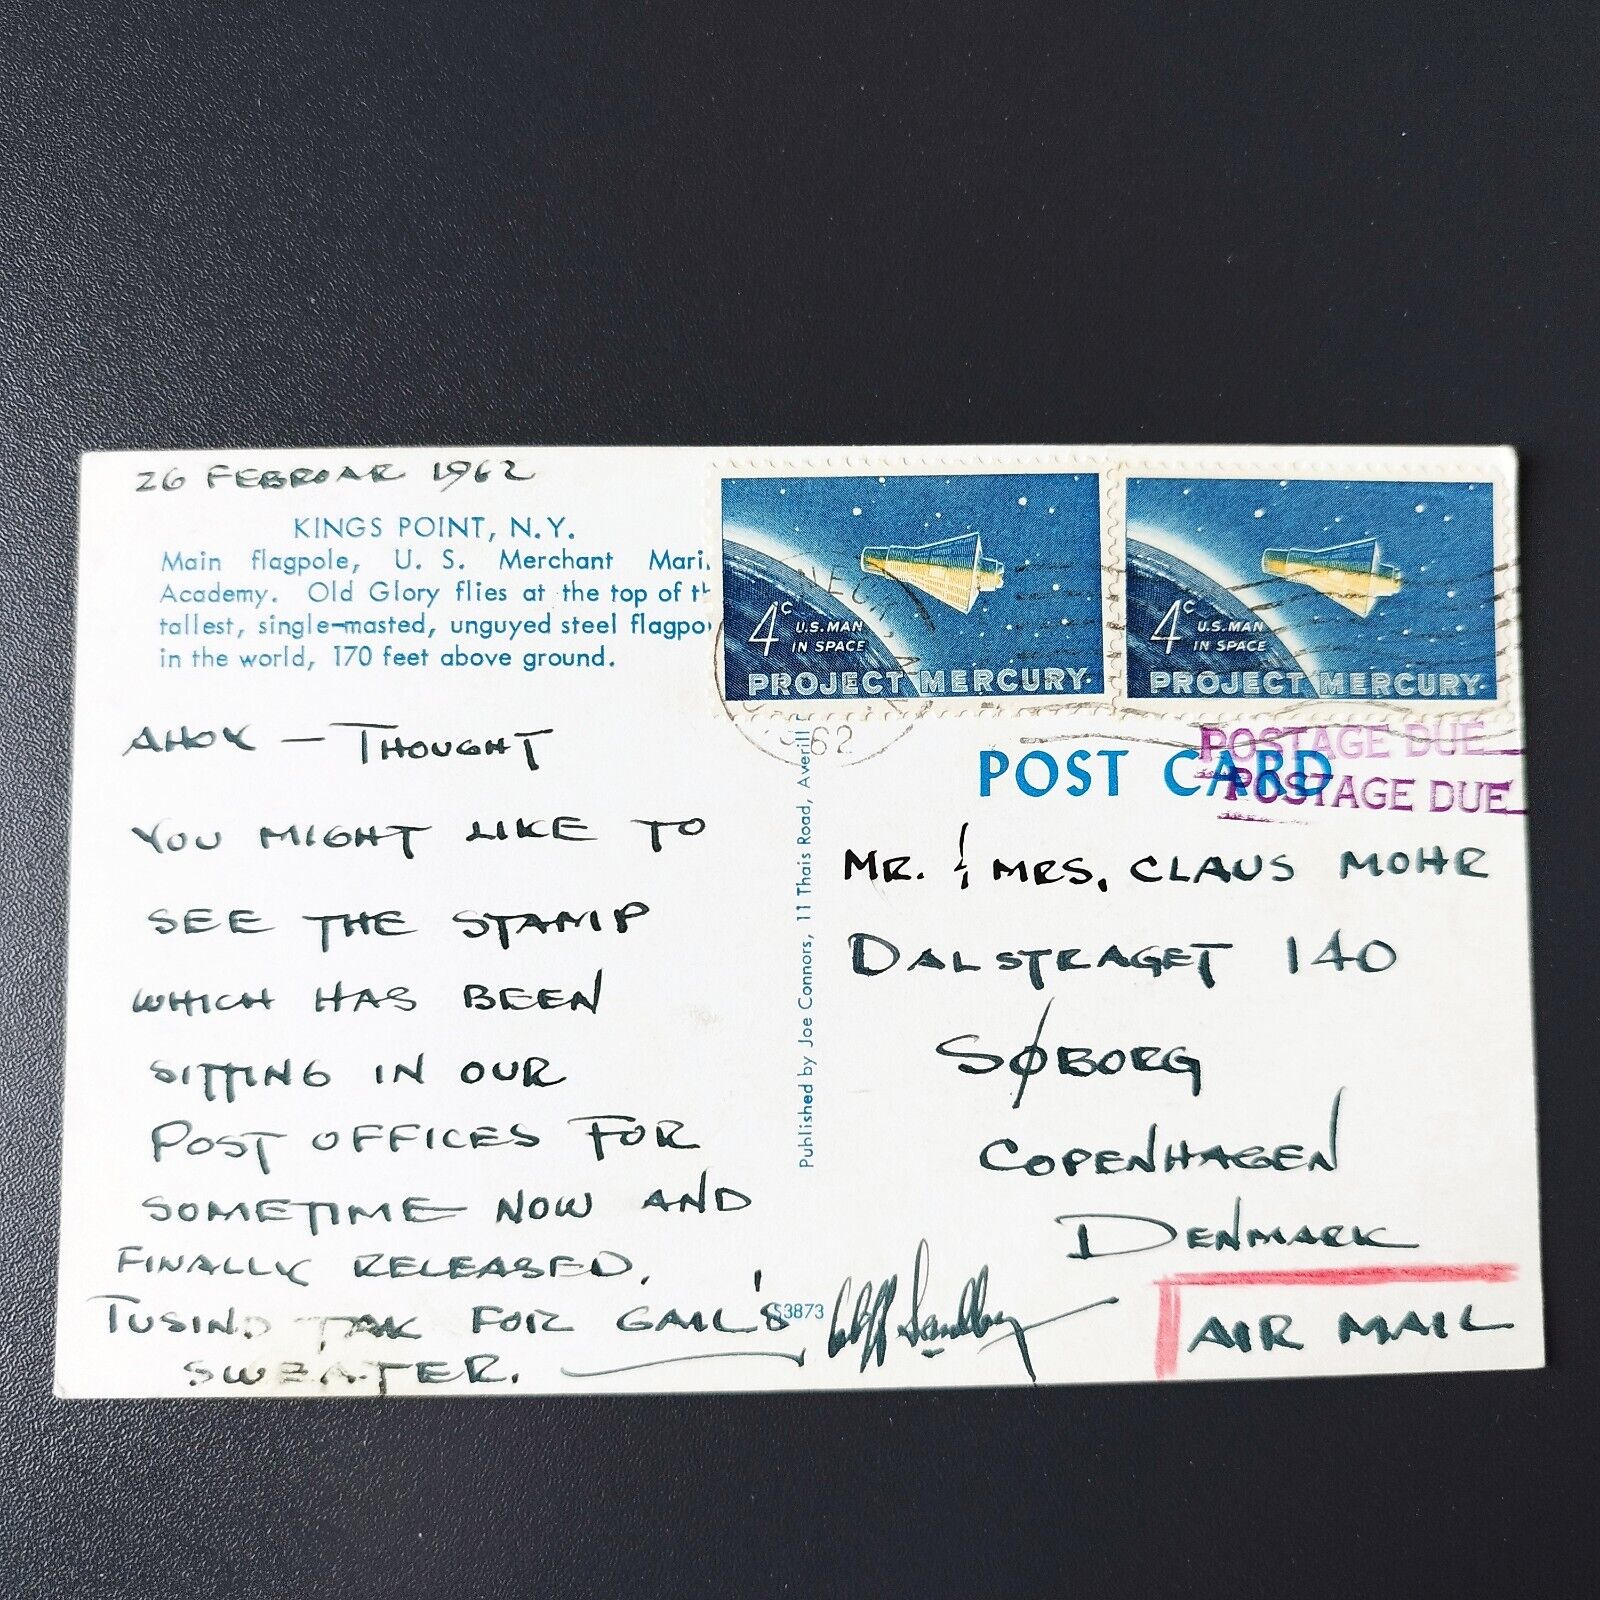 26 FEBROAR 1962
KINGS POINT, N.Y.
Main flagpole, U. S. Merchant Mari
Academy. Old Glory flies at the top of th
tallest, single-masted, unguyed steel flagpo
in the world, 170 feet above ground.
AHOY — THOUGHT
YOU MIGHT LIKE TO
SEE THE STAMP
WHICH HAS BEEN
SITTING IN OUR
POST OFFICES FOR
SOMETIME NOW AND
FINALLY RELEASED.
TUSIND TAK FOR GAIL'S
SWEATER.
S3873
Published by Joe Connors, 11 Thais Road, Averill
4c U.S. MAN
IN SPACE
PROJECT MERCURY
4c U.S. MAN
IN SPACE
PROJECT MERCURY
62
POSTAGE DUE
POSTAGE DUE
POST CARD
MR. & MRS. CLAUS MOHR
DALSTRAGET 140
SØBORG
COPENHAGEN
DENMARK
AIR MAIL